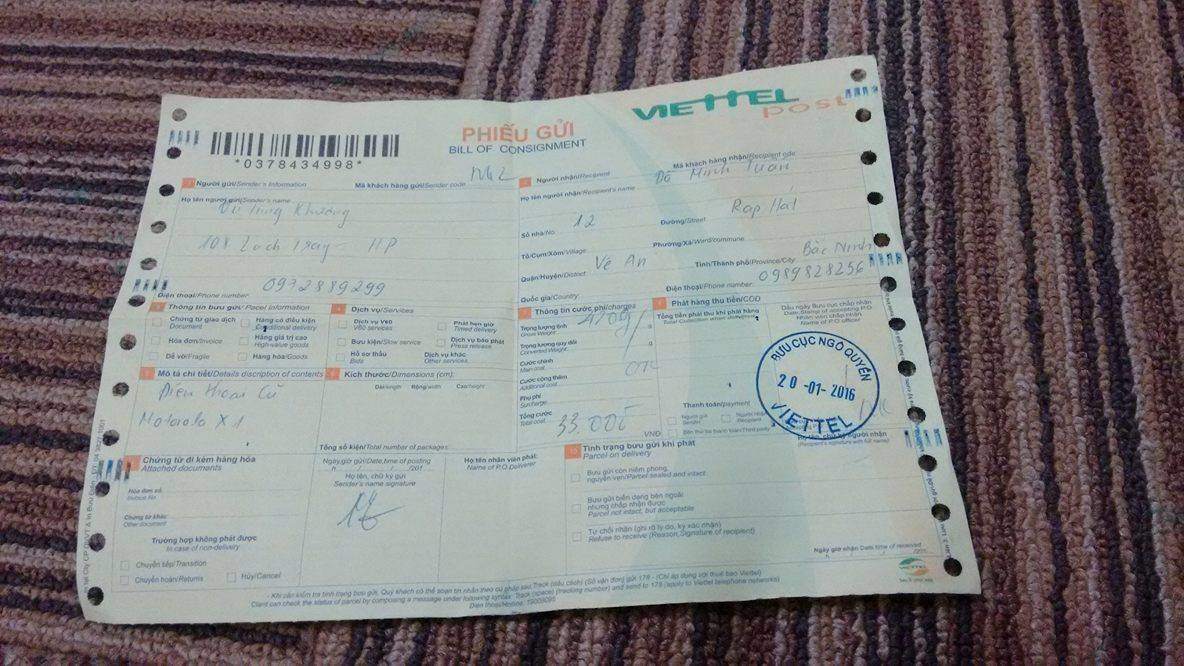 VIETTEL
post
PHIẾU GỬI
BILL OF CONSIGNMENT
*0378434998*
Người gửi/Sender's Information
Mã khách hàng gửi/Sender code
Họ tên người gửi/Sender's name
Khương
108 Lạch Tray - HP
0972889299
Điện thoại/Phone number:
Người nhận/Recipient
Mã khách hàng nhận/Recipient code
Họ tên người nhận/Recipient's name
Đỗ Minh Tuấn
Số nhà/No:
12
Đường/Street
Rạp Hát
Tổ/Cụm/Xóm/Village:
Phường/Xã/Ward/commune
Quận/Huyện/District:
Vệ An
Tỉnh/Thành phố/Province/City
Bắc Ninh
Quốc gia/Country:
Điện thoại/Phone number:
0989828256
Thông tin bưu gửi/Parcel information
Chứng từ giao dịch
Document
Hàng có điều kiện
Conditional delivery
Hóa đơn/Invoice
Hàng giá trị cao
High-value goods
Dễ vỡ/Fragile
Hàng hóa/Goods
Dịch vụ/Services
Dịch vụ V60
V60 services
Phát hẹn giờ
Timed delivery
Bưu kiện/Slow service
Dịch vụ báo phát
Press release
Hồ sơ thầu
Bids
Dịch vụ khác
Other services
Mô tả chi tiết/Details discription of contents
Điện thoại Cũ
Motorola X1
Kích thước/Dimensions (cm):
Dài/length Rộng/width Cao/height
Tổng số kiện/Total number of packages:
Thông tin cước phí/charges
Trọng lượng tính
Gross Weight
g
Trọng lượng quy đổi
Converted Weight
g
Cước chính
Main cost
Cước cộng thêm
Additional cost
Phụ phí
Surcharge
Tổng cước
Total cost
33.000
VNĐ
Phát hàng thu tiền/COD
Tổng tiền phải thu khi phát hàng
Dấu ngày Bưu cục chấp nhận
Date.Stamp of accepting P.O
Nhân viên chấp nhận
Name of P.O officer
BƯU CỤC NGÔ QUYỀN
20-01-2016
VIETTEL
Thanh toán/payment
Người gửi
Sender
Người nhận
Recipient
Chứng từ đi kèm hàng hóa
Attached documents
Hóa đơn số
Invoice No
Chứng từ khác
Other document
Trường hợp không phát được
In case of non-delivery
Chuyển tiếp/Transition
Chuyển hoàn/Returns
Hủy/Cancel
Ngày giờ gửi/Date,time of posting
Họ tên, chữ ký gửi
Sender's name signature
Họ tên nhân viên phát:
Name of P.O Deliverer
Tình trạng bưu gửi khi phát
Parcel on delivery
Bưu gửi còn niêm phong,
nguyên vẹn/Parcel sealed and intact
Bưu gửi biến dạng bên ngoài
nhưng chấp nhận được
Parcel not intact, but acceptable
Từ chối nhận (ghi rõ lý do, ký xác nhận)
Refuse to receive (Reason,Signature of recipient)
Ngày giờ nhận Date time of received
- Khi cần kiểm tra tình trạng bưu gửi, Quý khách có thể soạn tin nhắn theo cú pháp sau:Track (dấu cách) (Số vận đơn) gửi 178 - (Chỉ áp dụng với thuê bao Viettel)
Client can check the status of parcel by composing a message under following syntax: Track (space) (tracking number) and send to 178 (apply to Viettel telephone networks)
VIETTEL